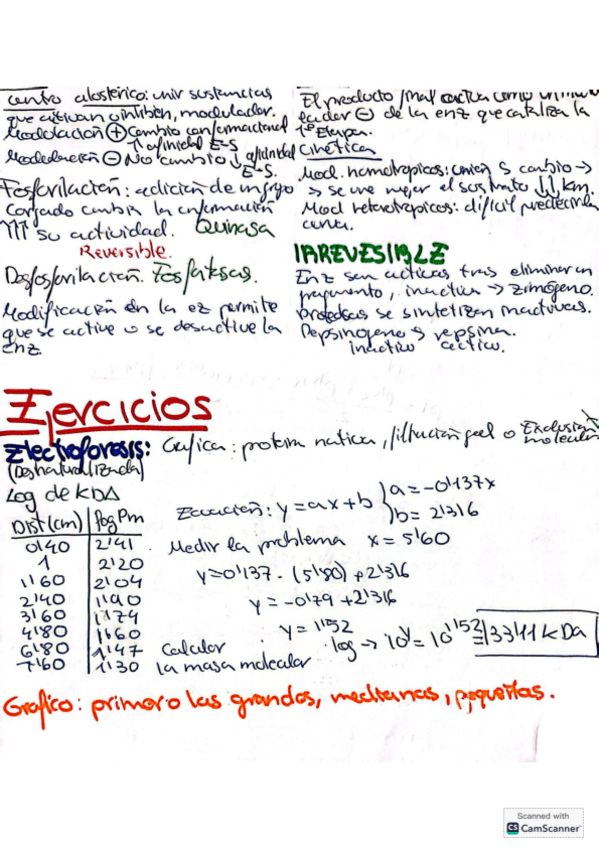 centro alostérico: unir sustancias
que activan o inhiben, modulador.
Modulación ⊕ Cambio conformacional
↑ afinidad E-S
Modulación ⊖ No cambio ↓ afinidad
E-S.
Fosforilación: adición de un grupo
cargado cambia la conformación
↑↑↑ su actividad. Quinasa
Reversible.
Desfosforilación. Fosfatasas.
Modificación en la ez permite
que se active o se desactive la
enz
El producto final actúa como
⊖ de la enz que cataliza la
1ª Etapa.
Cinética
Mod. homotropicos: unión S cambio →
→ se une mejor el sustrato ↓↓ km.
Mod heterotropicos: difícil predecir la
curva.
IRREVESIBLE
Enz son activas tras eliminar un
fragmento, inactiva → zimógeno.
Proteasas se sintetizan inactivas.
Pepsinogeno → pepsina.
inactivo activo.
Ejercicios
Electroforesis: Grafica: proteina nativa, filtración gel o Exclusión
molecular
(Desnaturalizada)
Log de kDA
Dist (cm) log Pm
0'40 2'41
1 2'20
1'60 2'04
2'40 1'90
3'60 1'74
4'80 1'60
6'80 1'47
7'60 1'30
Ecuación: y=ax+b { a=-0'137x
b= 2'316
Medir la problema x= 5'60
y=0'137 · (5'80) + 2'316
y= -0'79 +2'316
y= 1'52
Calcular
la masa molecular
log → 10^y = 10^1'52 = 33'41 kDa
Grafico: primero las grandes, medianas, pequeñas.
Scanned with
CS CamScanner